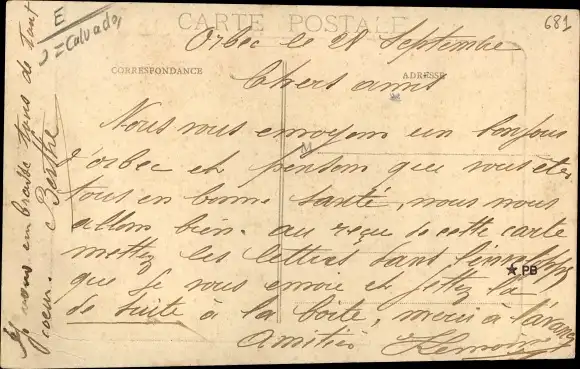 CARTE POSTALE
681
E
J = Calvados
Orbec le 28 Septembre
CORRESPONDANCE
ADRESSE
Chers amis
Nous vous envoyons un bonjour
d'orbec et pensons que vous êtes
tous en bonne santé, nous nous
allons bien. au reçu de cette carte
mettez les lettres dans l'enveloppe
que je vous envoie et jettez la
de suite à la boite, merci à l'avance
Amitiés
M
PB
Je vous embrasse tous de tout
coeur. Berthe